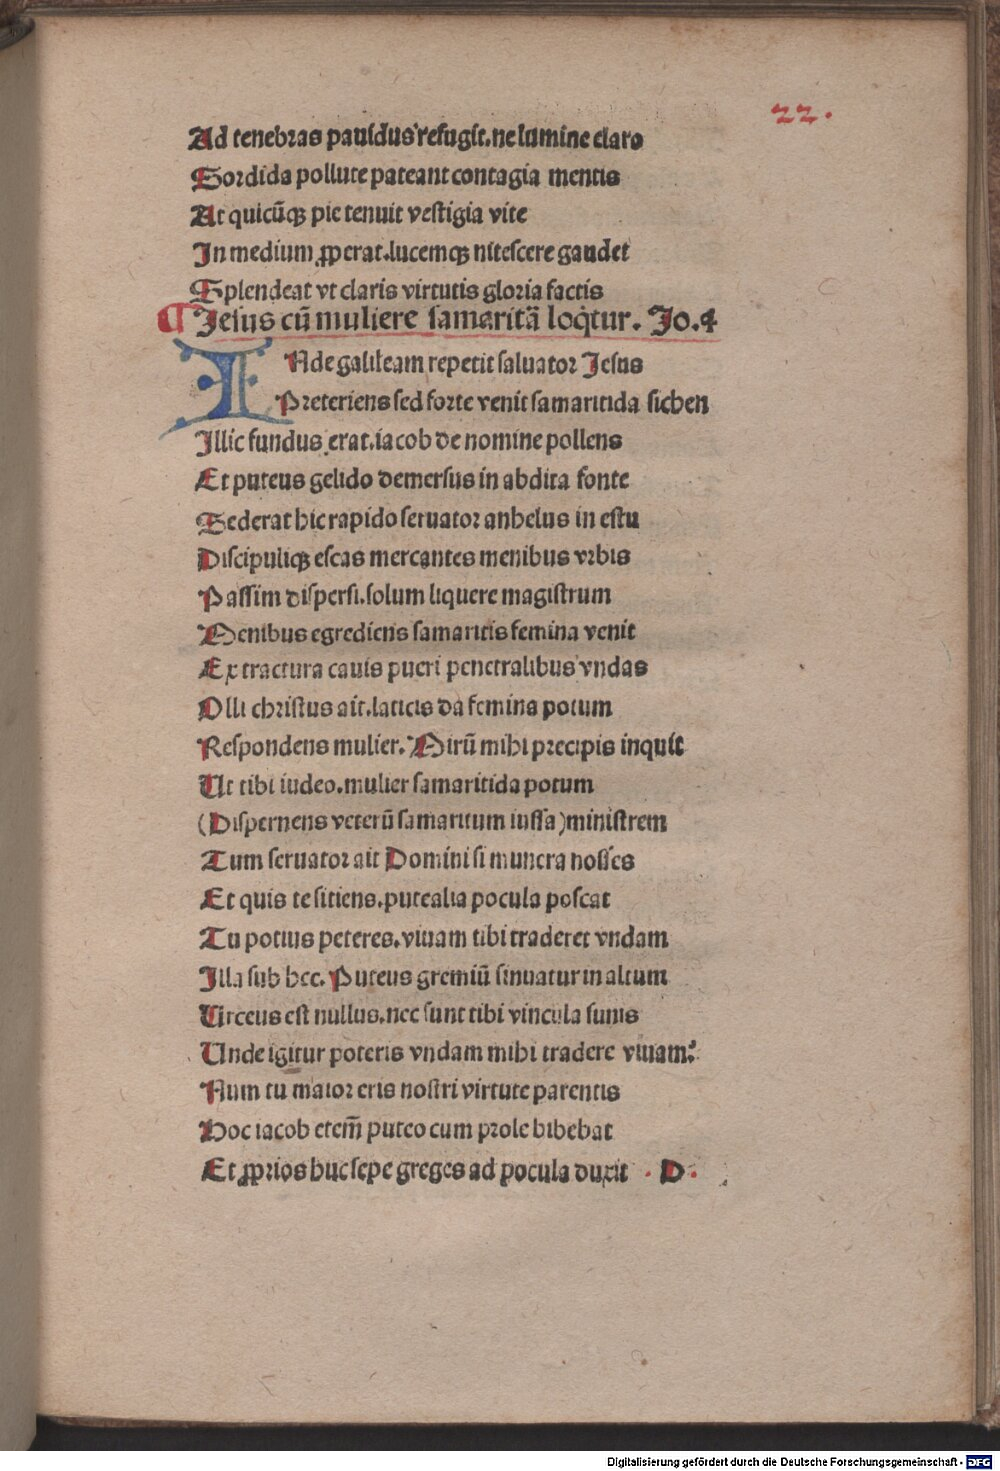 22.
Ad tenebras pauidus refugit.ne lumine claro
Sordida pollute pateant contagia mentis
At quicūqꝫ pie tenuit vestigia vite
In medium ꝓperat.lucemqꝫ nitescere gaudet
Splendeat vt claris virtutis gloria factis
¶ Jesus cū muliere samaritā loq̄tur. Jo.4
INde galileam repetit saluator Jesus
Preteriens sed forte venit samaritida sichen
Illic fundus erat.iacob de nomine pollens
Et puteus gelido demersus in abdita fonte
Sederat hic rapido seruator anhelus in estu
Discipuliqꝫ escas mercantes menibus vrbis
Passim dispersi.solum liquere magistrum
Menibus egrediens samaritis femina venit
Extractura cauis puteri penetralibus vndas
Olli christus ait.laticis da femina potum
Respondens mulier. Mirū mihi precipis inquit
Ut tibi iudeo.mulier samaritida potum
(Dispernens veterū samaritum iussa)ministrem
Tum seruator ait Domini si munera nosses
Et quis te sitiens.putealia pocula poscat
Tu potius peteres.viuam tibi traderet vndam
Illa sub hec. Puteus gremiū sinuatur in altum
Urceus est nullus.nec sunt tibi vincula funis
Unde igitur poteris vndam mihi tradere viuam?
Num tu maior eris nostri virtute parentis
Hoc iacob etem̄ puteo cum prole bibebat
Et ꝓprios huc sepe greges ad pocula duxit . D.
Digitalisierung gefördert durch die Deutsche Forschungsgemeinschaft - DFG